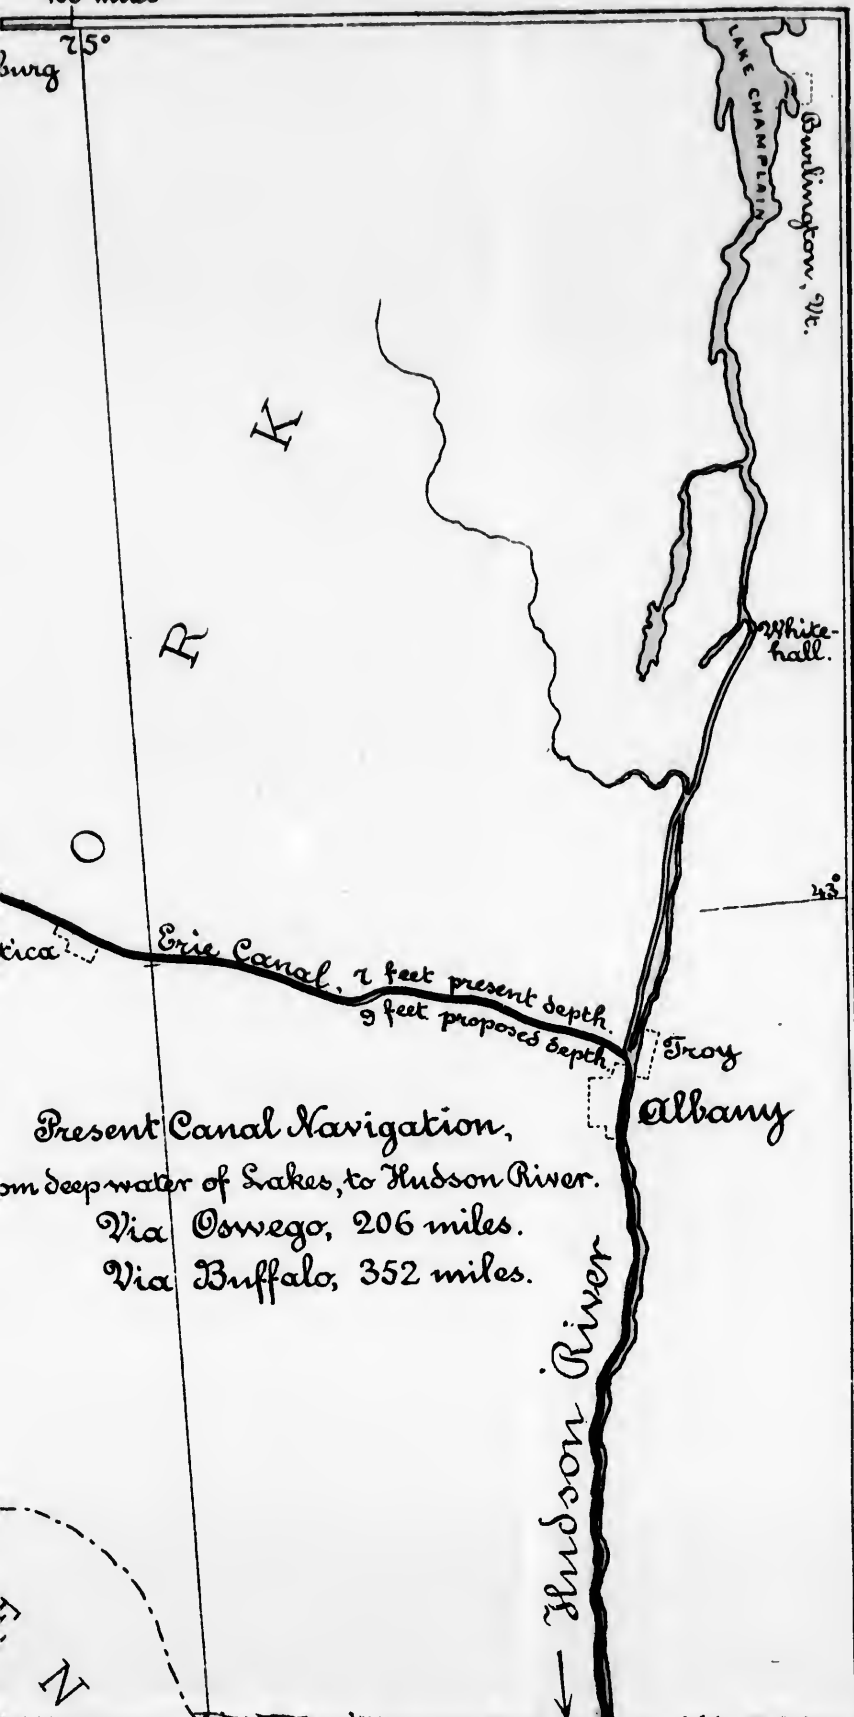 75°
burg
LAKE CHAMPLAIN
Burlington, Vt.
K
R
White-
hall.
O
43°
tica
Erie Canal, 7 feet present depth.
9 feet proposed depth.
Troy
Albany
Present Canal Navigation,
om deep water of Lakes, to Hudson River.
Via Oswego, 206 miles.
Via Buffalo, 352 miles.
Hudson River
E
N